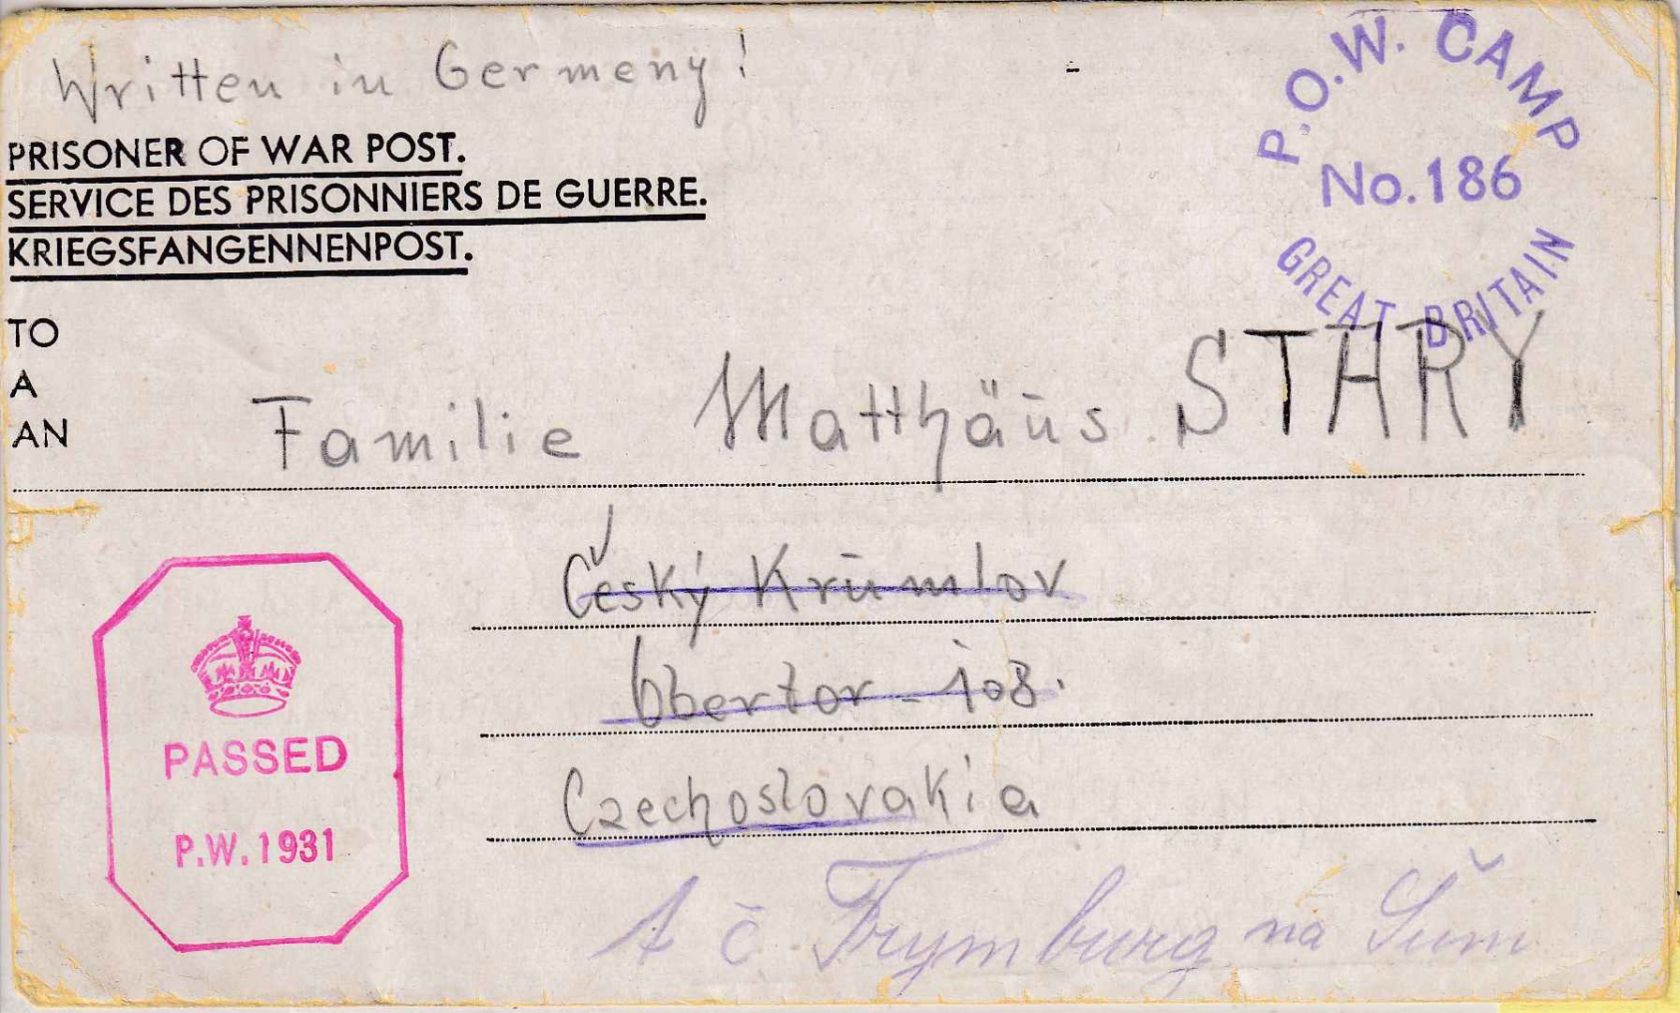 Written in Germeny!
P.O.W. CAMP
No. 186
GREAT BRITAIN
PRISONER OF WAR POST.
SERVICE DES PRISONNIERS DE GUERRE.
KRIEGSFANGENNENPOST.
TO
A
AN
Familie Matthäus STARY
Český Krŭmlov
Obertor - 108.
Czechoslovakia
PASSED
P.W. 1931
č Frymburg na Šum